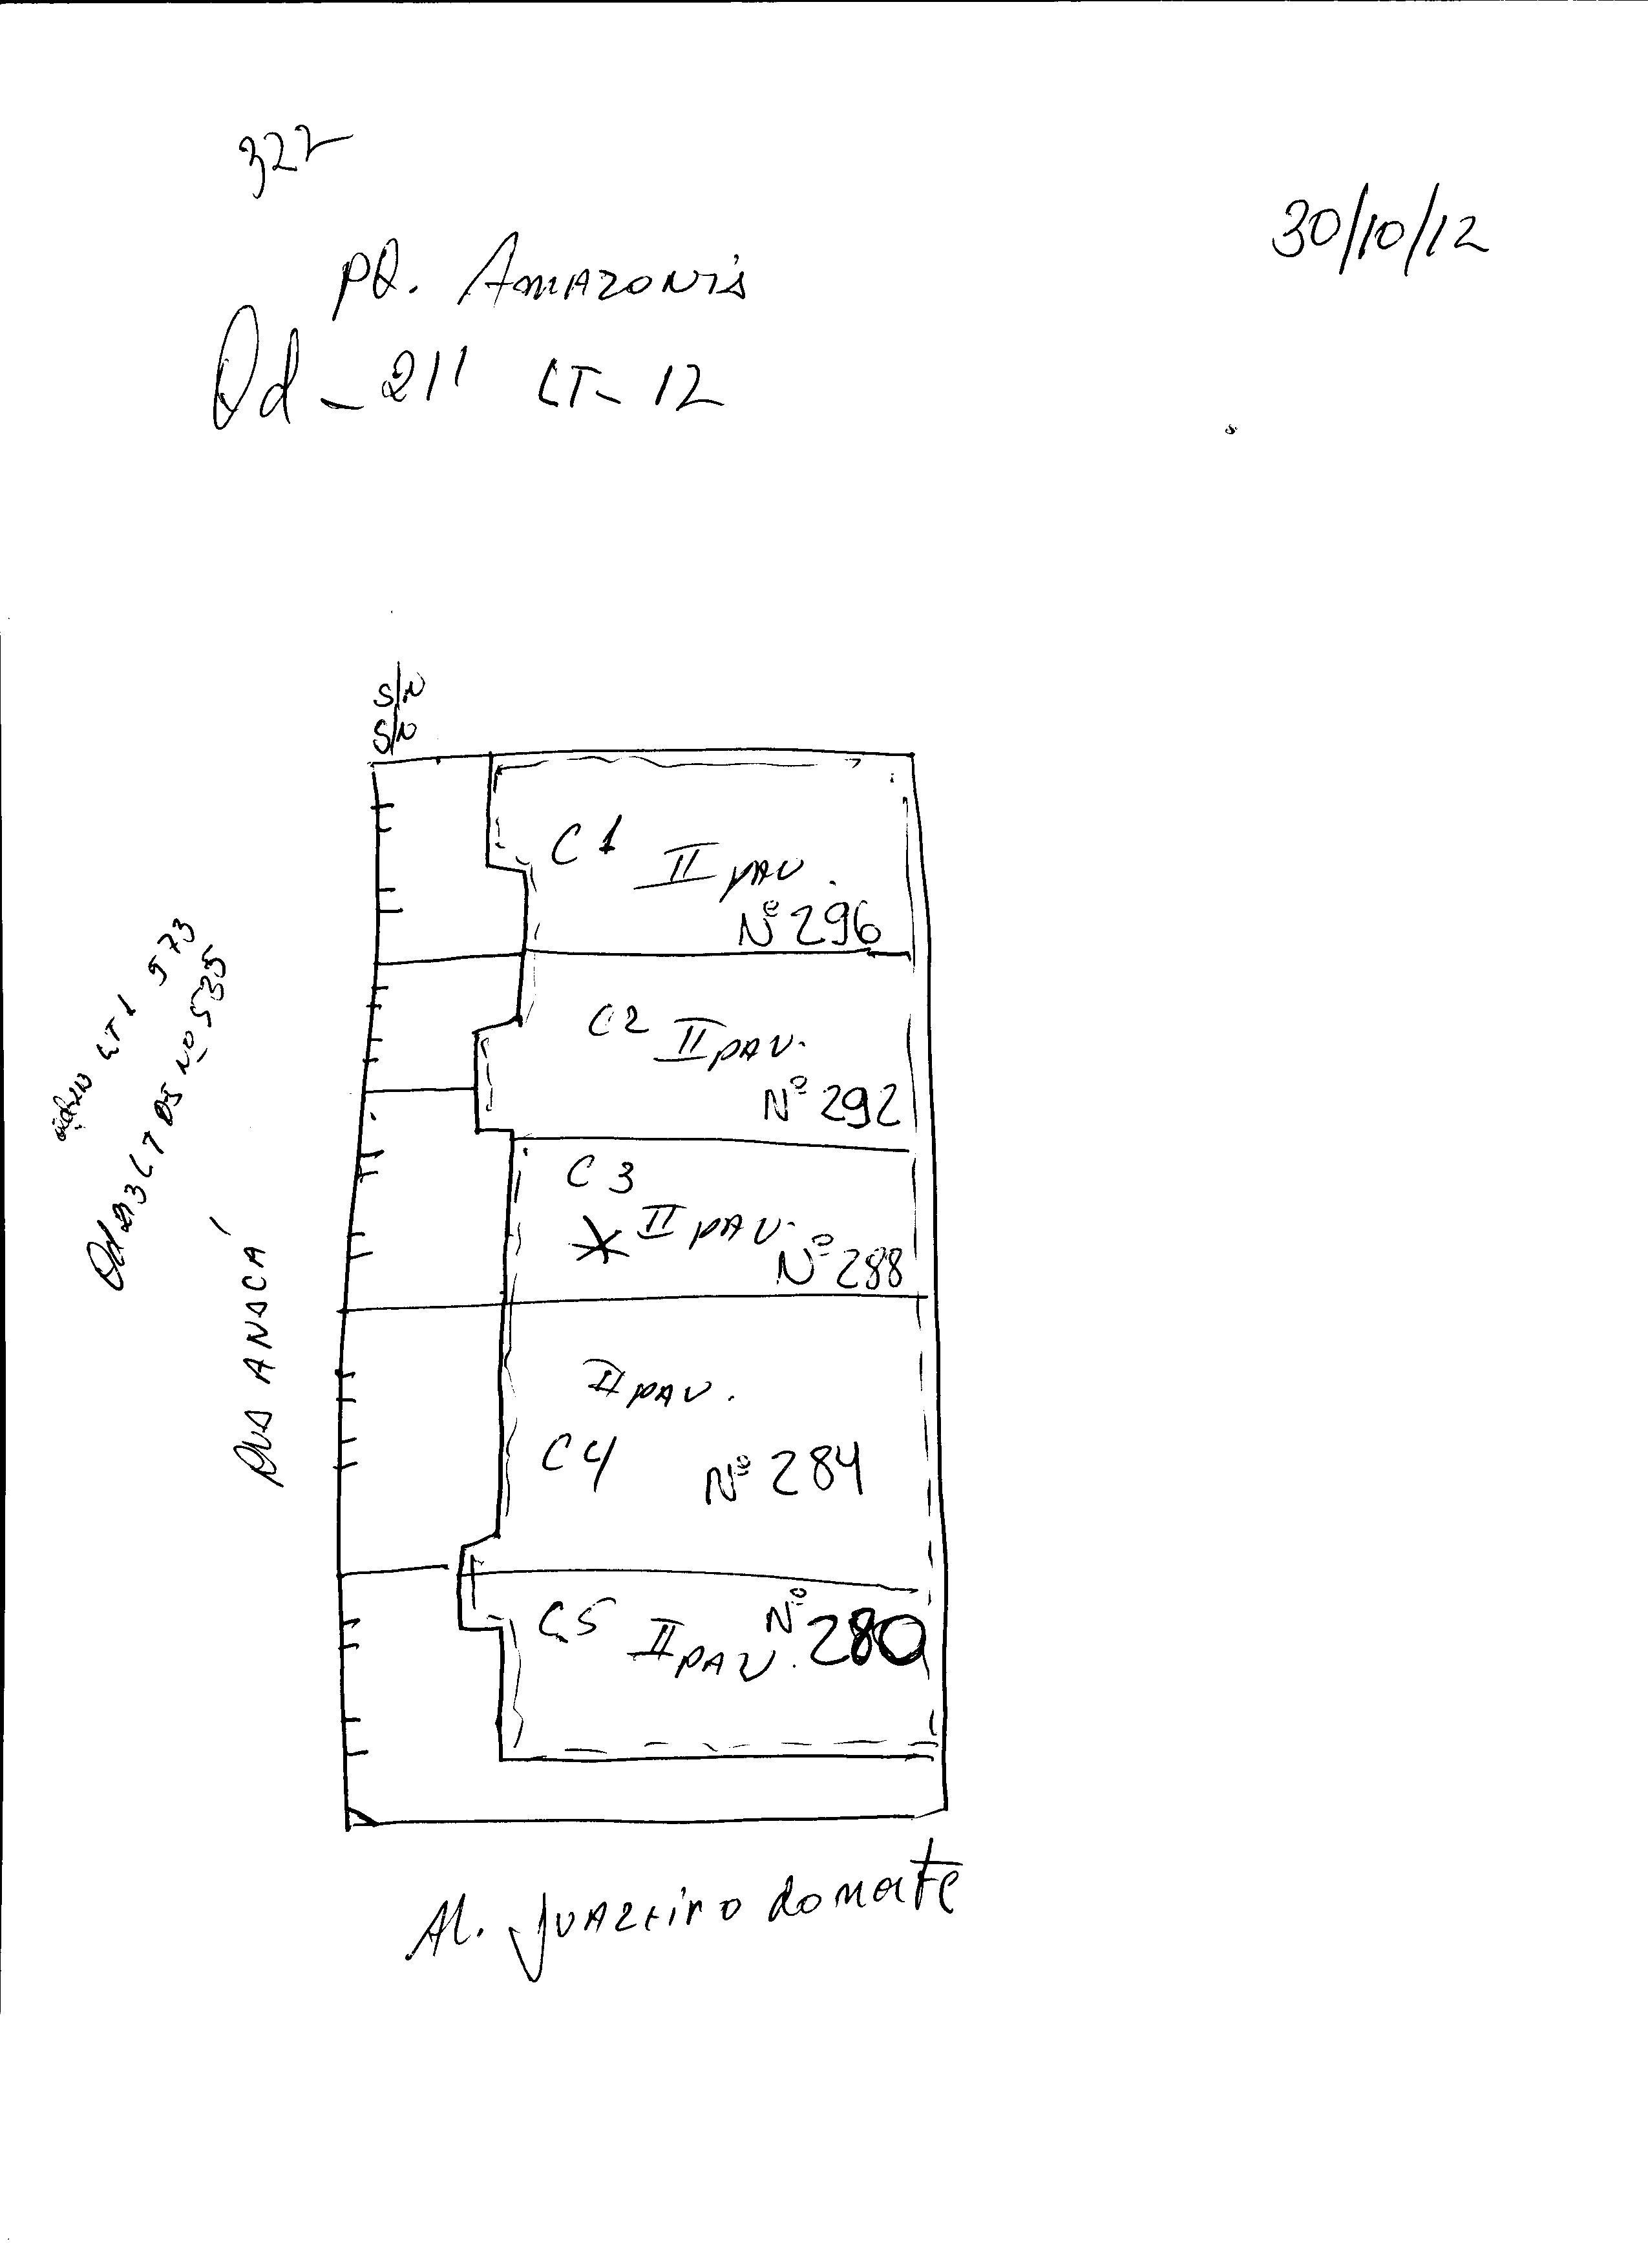 322
30/10/12
PQ. AMAZONIA
Qd - 211 LT- 12
S/N
S/N
C 1 II PAV.
Nº 296
C2 II PAV.
Nº 292
C 3
* II PAV.
Nº 288
II PAV.
C4 Nº 284
C5 II PAV. Nº 280
LT 1 573
Qd 213 LT 05 Nº 535
RUA ANACÁ
Al. JUAZEIRO do norte